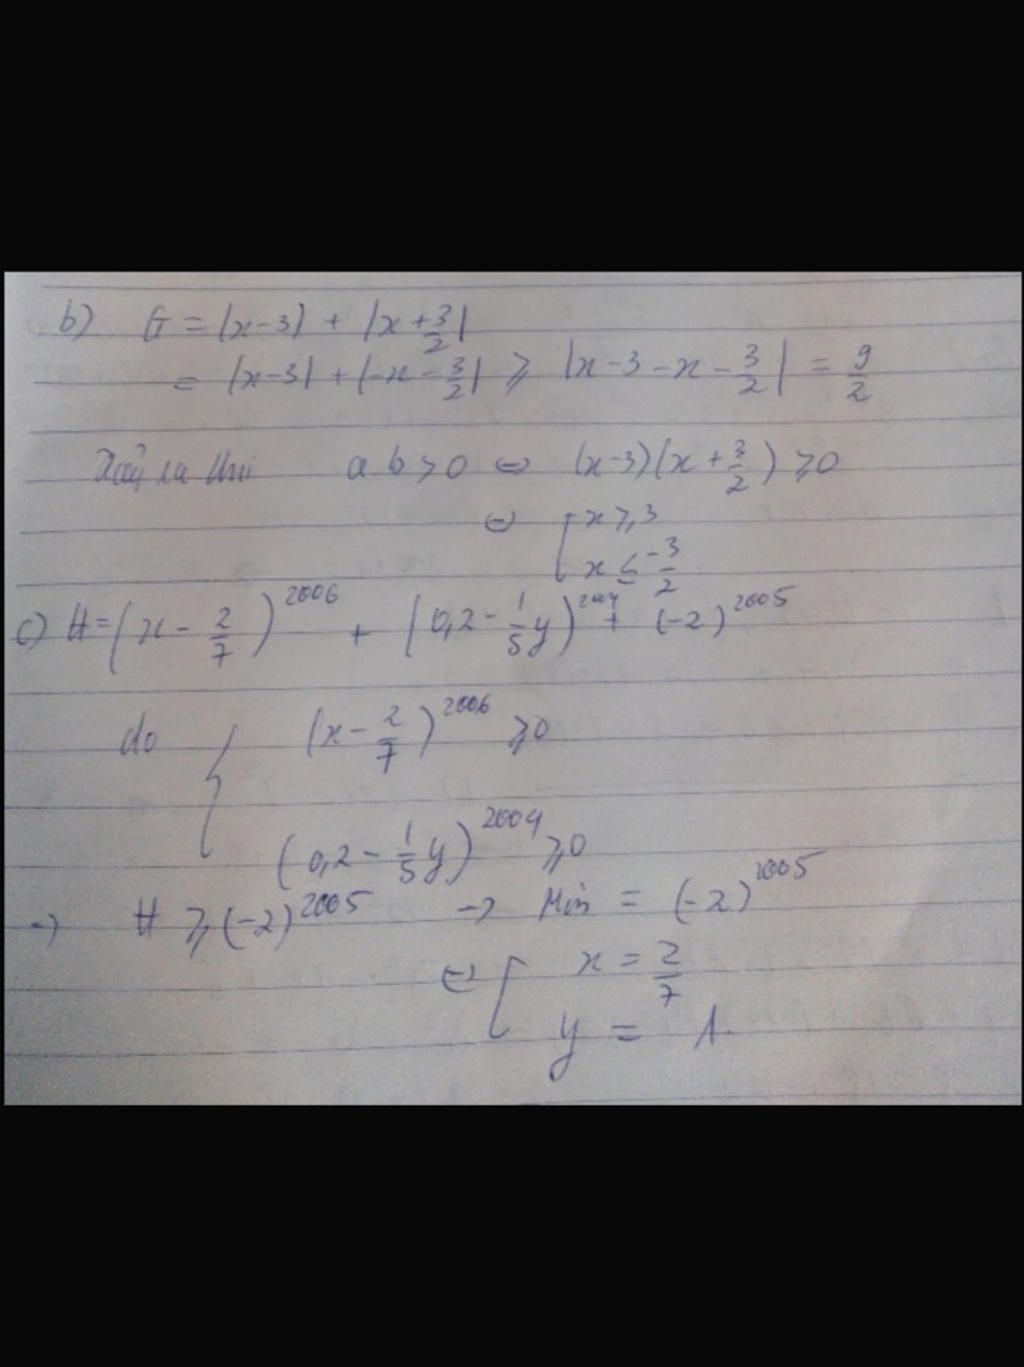 b) G = |x-3| + |x+3/2|
= |x-3| + |-x-3/2| ⩾ |x-3-x-3/2| = 9/2
Xảy ra khi a b > 0 ⇔ (x-3)(x+3/2) ⩾ 0
⇔ [ x ⩾ 3
x ≤ -3/2
c) H = (x - 2/7)^2006 + (0,2 - 1/5 y)^2004 + (-2)^2005
do { (x - 2/7)^2006 ⩾ 0
(0,2 - 1/5 y)^2004 ⩾ 0
→ H ⩾ (-2)^2005 → Min = (-2)^2005
⇔ [ x = 2/7
y = 1.